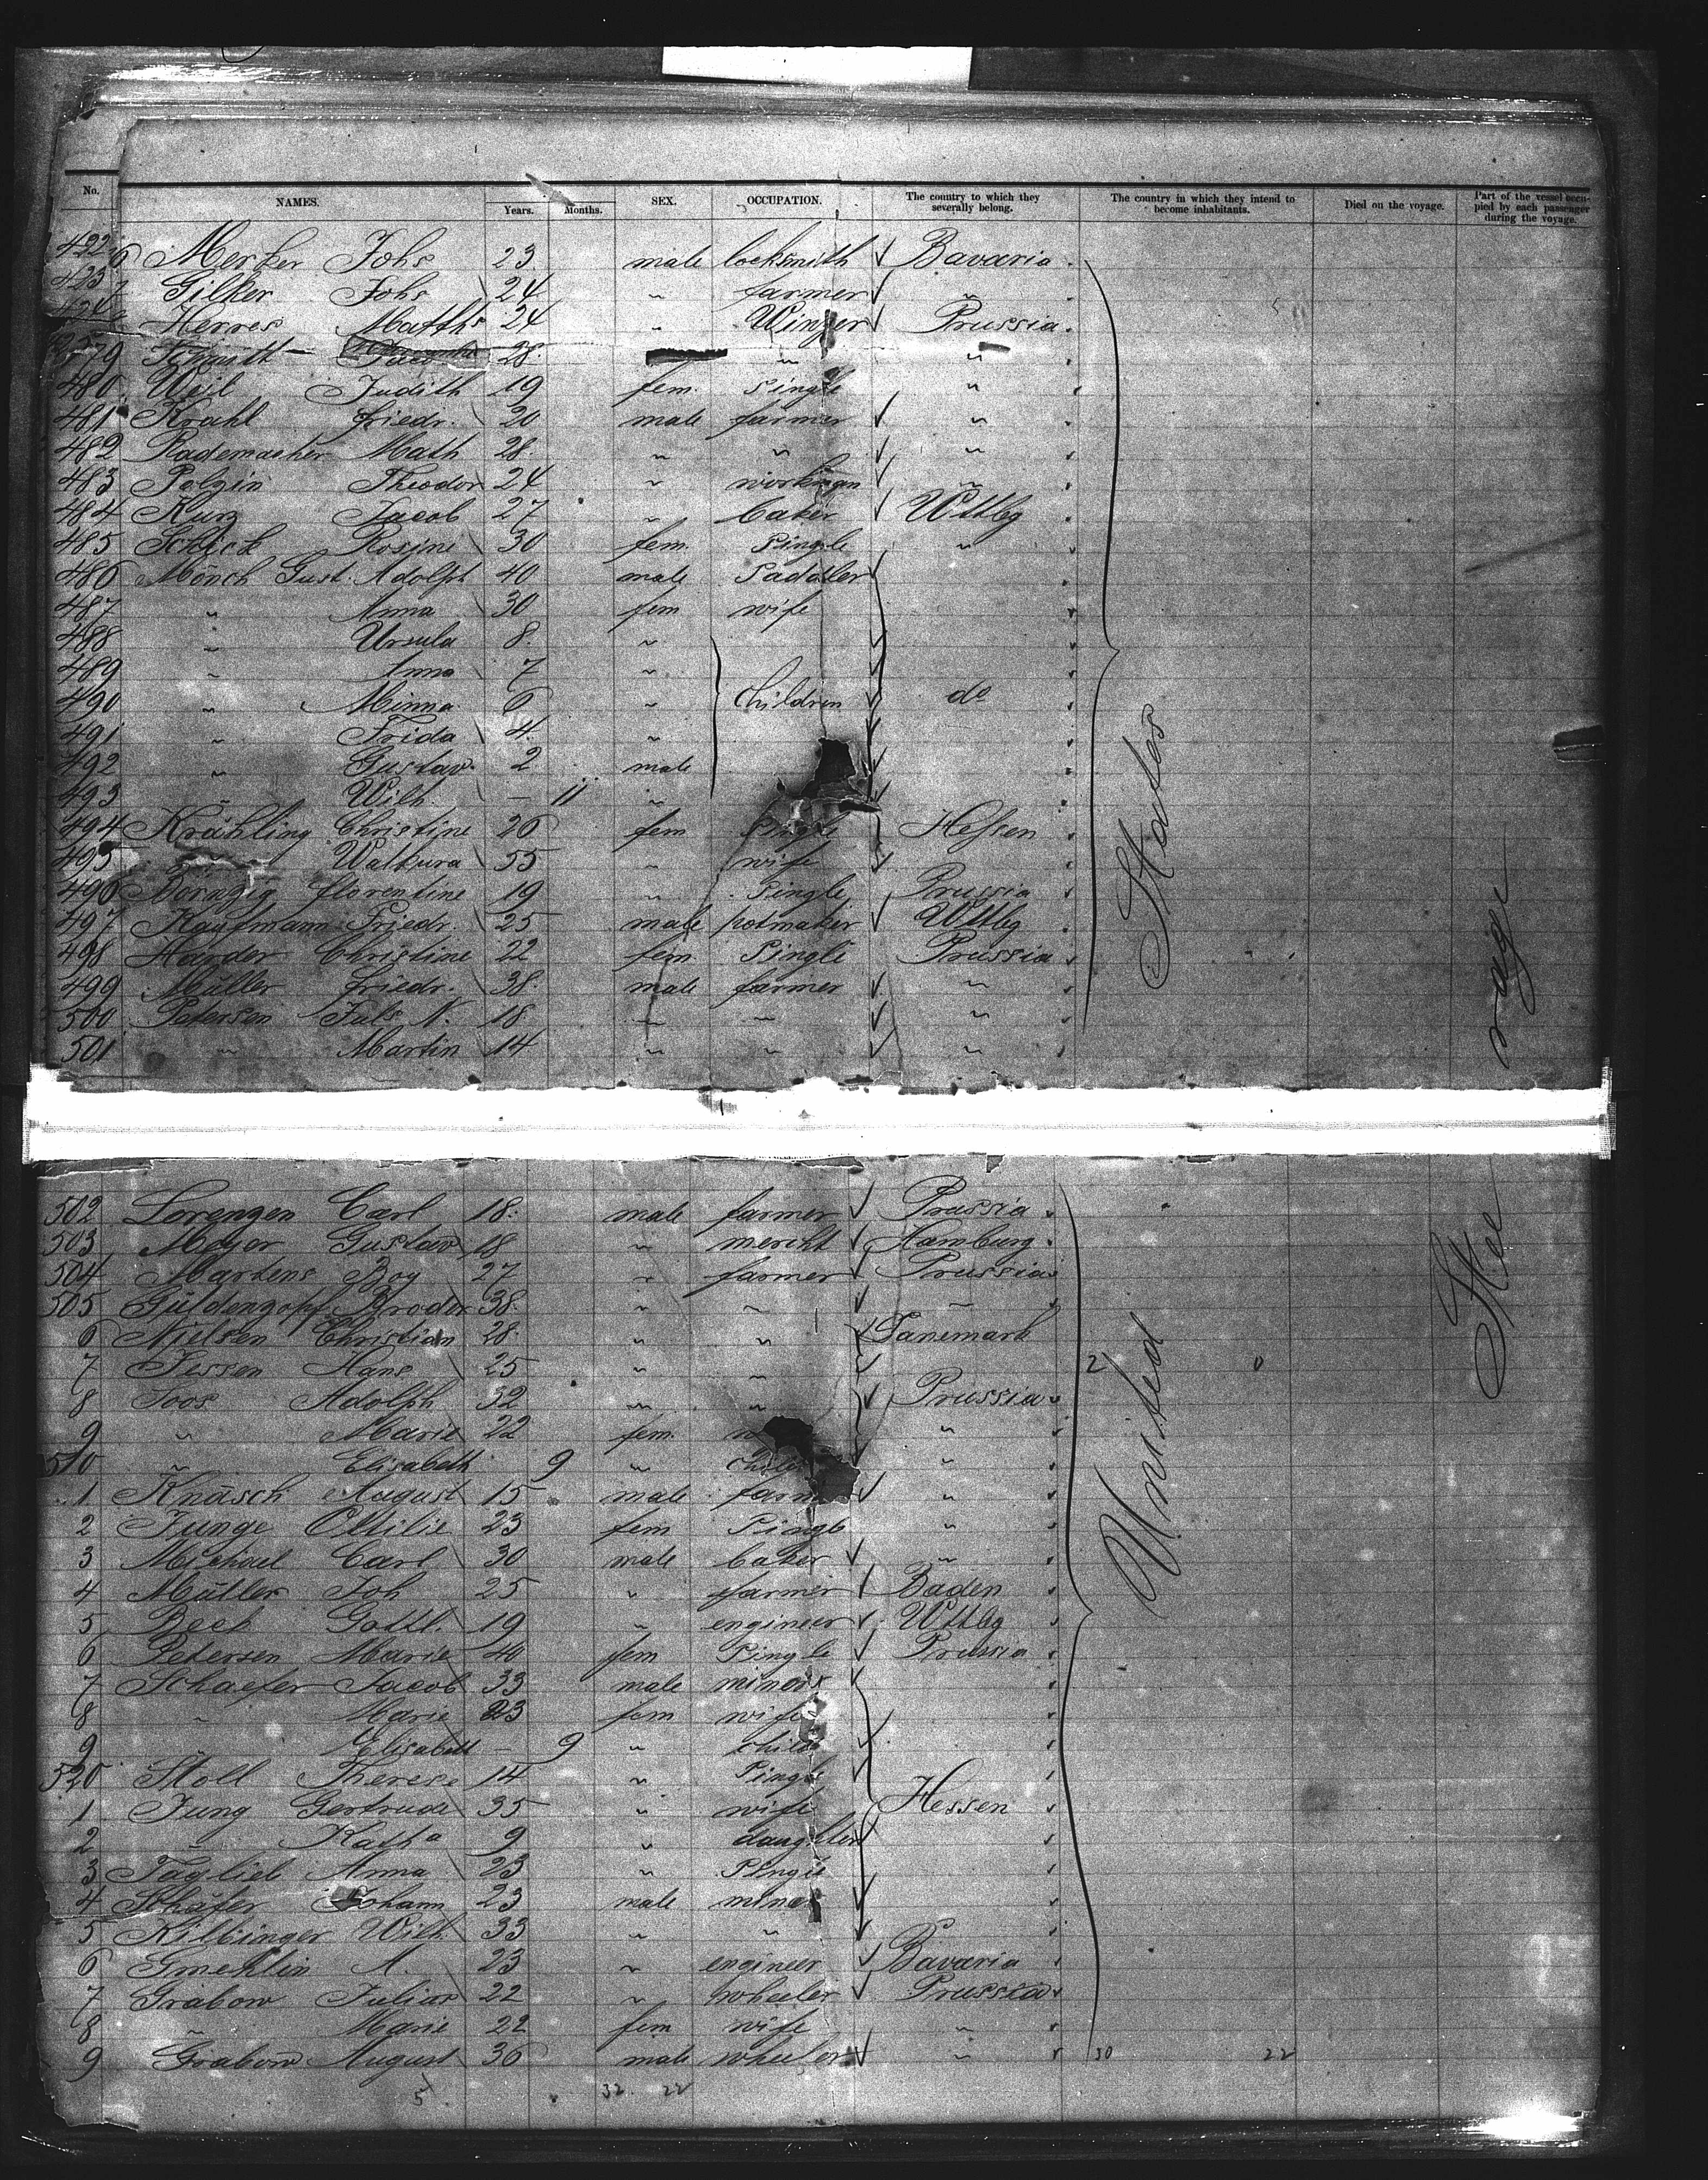 No. NAMES. Years. Months. SEX. OCCUPATION. The country to which they severally belong. The country in which they intend to become inhabitants. Died on the voyage. Part of the vessel occupied by each passenger during the voyage.
Merker Johs 23 male locksmith Bavaria
Gilker Johs 24 " farmer "
Herres Matths 24 " Winzer Prussia
79 Schmitt 28 " "
480 Weil Judith 19 fem. Single "
481 Krahl Friedr. 20 male farmer "
482 Rademacher Math 28 " " "
483 Polzin Theodor 24 " workman "
484 Kurz Jacob 27 " baker Wttbg
485 Schick Rosine 30 fem. Single "
486 Mönch Gust. Adolph 40 male Saddler
487 " Anna 30 fem wife
488 " Ursula 8 "
489 " Anna 7 "
490 " Minna 6 " Children do
491 " Frida 4 "
492 " Gustav 2 male
493 " Wilh. — 11 "
494 Krähling Christine 26 fem Single Hessen
495 " 55 " wife
496 Florentine 19 " Single Prussia
497 Kaufmann Friedr. 25 male potmaker Wttbg
498 Harder Christine 22 fem. Single Prussia
499 Müller Friedr. 38 male farmer "
500 Petersen Juls N. 18 " " "
501 " Martin 14 " " "
502 Lorenzen Carl 18 male farmer Prussia
503 Meyer Gustav 18 " mercht Hamburg
504 Martens Boy 27 " farmer Prussia
505 Güldenzopf Broder 38 " " "
6 Nielsen Christian 28 " " Danemark
7 Jessen Hans 25 " " 2 0
8 Joos Adolph 32 " " Prussia
9 " Marie 22 fem. "
510 " Elisabeth 9 " child "
1 Knäsch August 15 male farm "
2 Junge Ottilie 23 fem Single "
3 Michael Carl 30 male baker "
4 Müller Joh 25 " farmer Baden
5 Beck Gottl. 19 " engineer Wttbg
6 Petersen Marie 40 fem Single Prussia
7 Schaefer Jacob 33 male minois
8 " Marie 23 fem wife
9 " Elisabeth — 9 " child
520 Stoll Therese 14 " Single
1 Jung Gertrude 35 " wife Hessen
2 " Katha 9 " daughter
3 Täglieb Anna 23 " Single
4 Schäfer Johann 23 male miner
5 Kilbinger Wilh. 33 " "
6 Gmehlin A. 23 " engineer Bavaria
7 Grabow Julius 22 " wheeler Prussia
8 " Marie 22 fem wife "
9 Grabow August 36 male wheeler " 30 22
5 32 22
United States